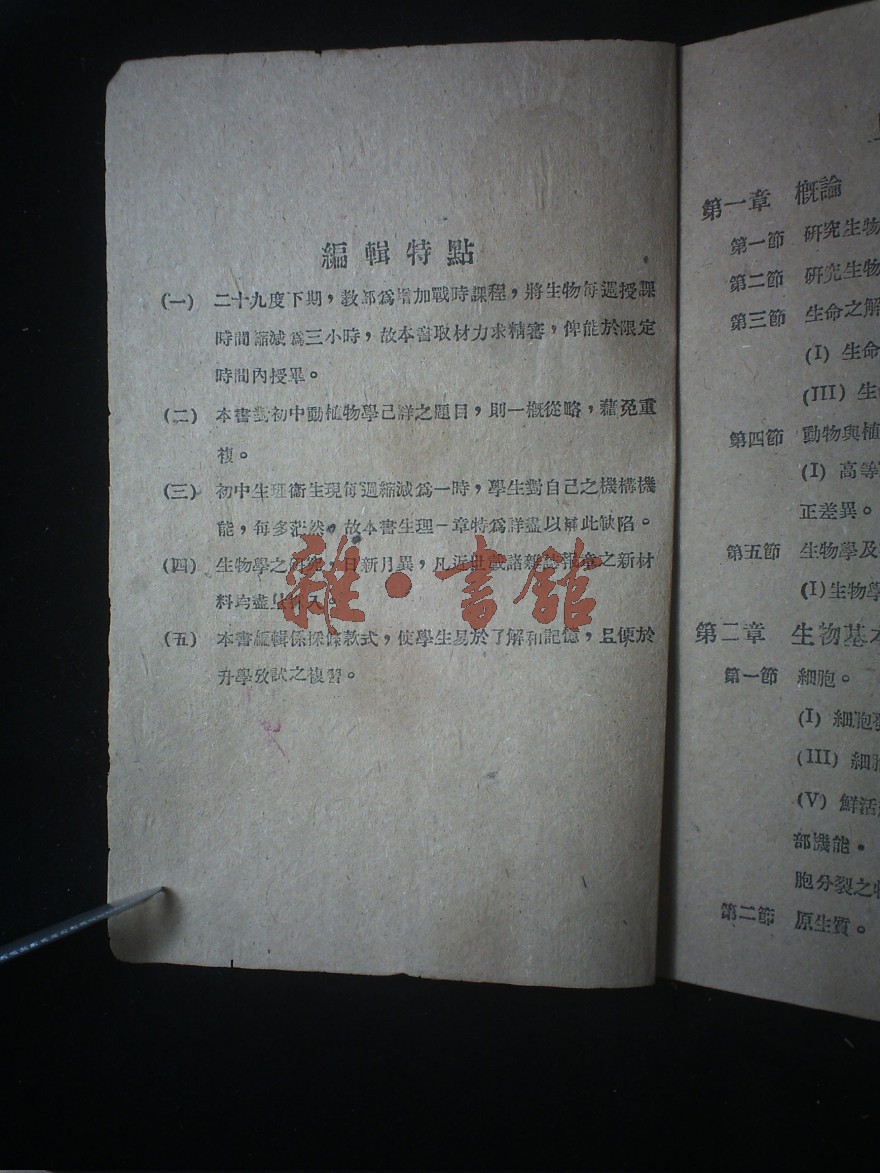 編輯特點
(一) 二十九度下期，教部爲增加戰時課程，將生物每週授課
時間縮減爲三小時，故本書取材力求精審，俾能於限定
時間內授畢。
(二) 本書對初中動植物學已詳之題目，則一概從略，藉免重
複。
(三) 初中生理衞生現每週縮減爲一時，學生對自己之機構機
能，每多茫然，故本書生理一章特爲詳盡以補此缺陷。
(四) 生物學之研究，日新月異，凡近世載諸雜誌報章之新材
料均盡量
(五) 本書編輯係採條款式，使學生易於了解和記憶，且便於
升學攷試之複習。
雜·書館
第一章 概論
第一節 研究生物
第二節 研究生物
第三節 生命之解
(I) 生命
(III) 生
第四節 動物與植
(I) 高等
正差異。
第五節 生物學及
(I)生物學
第二章 生物基本
第一節 細胞。
(I) 細胞
(III) 細胞
(V) 鮮活
部機能。
胞分裂之
第二節 原生質。